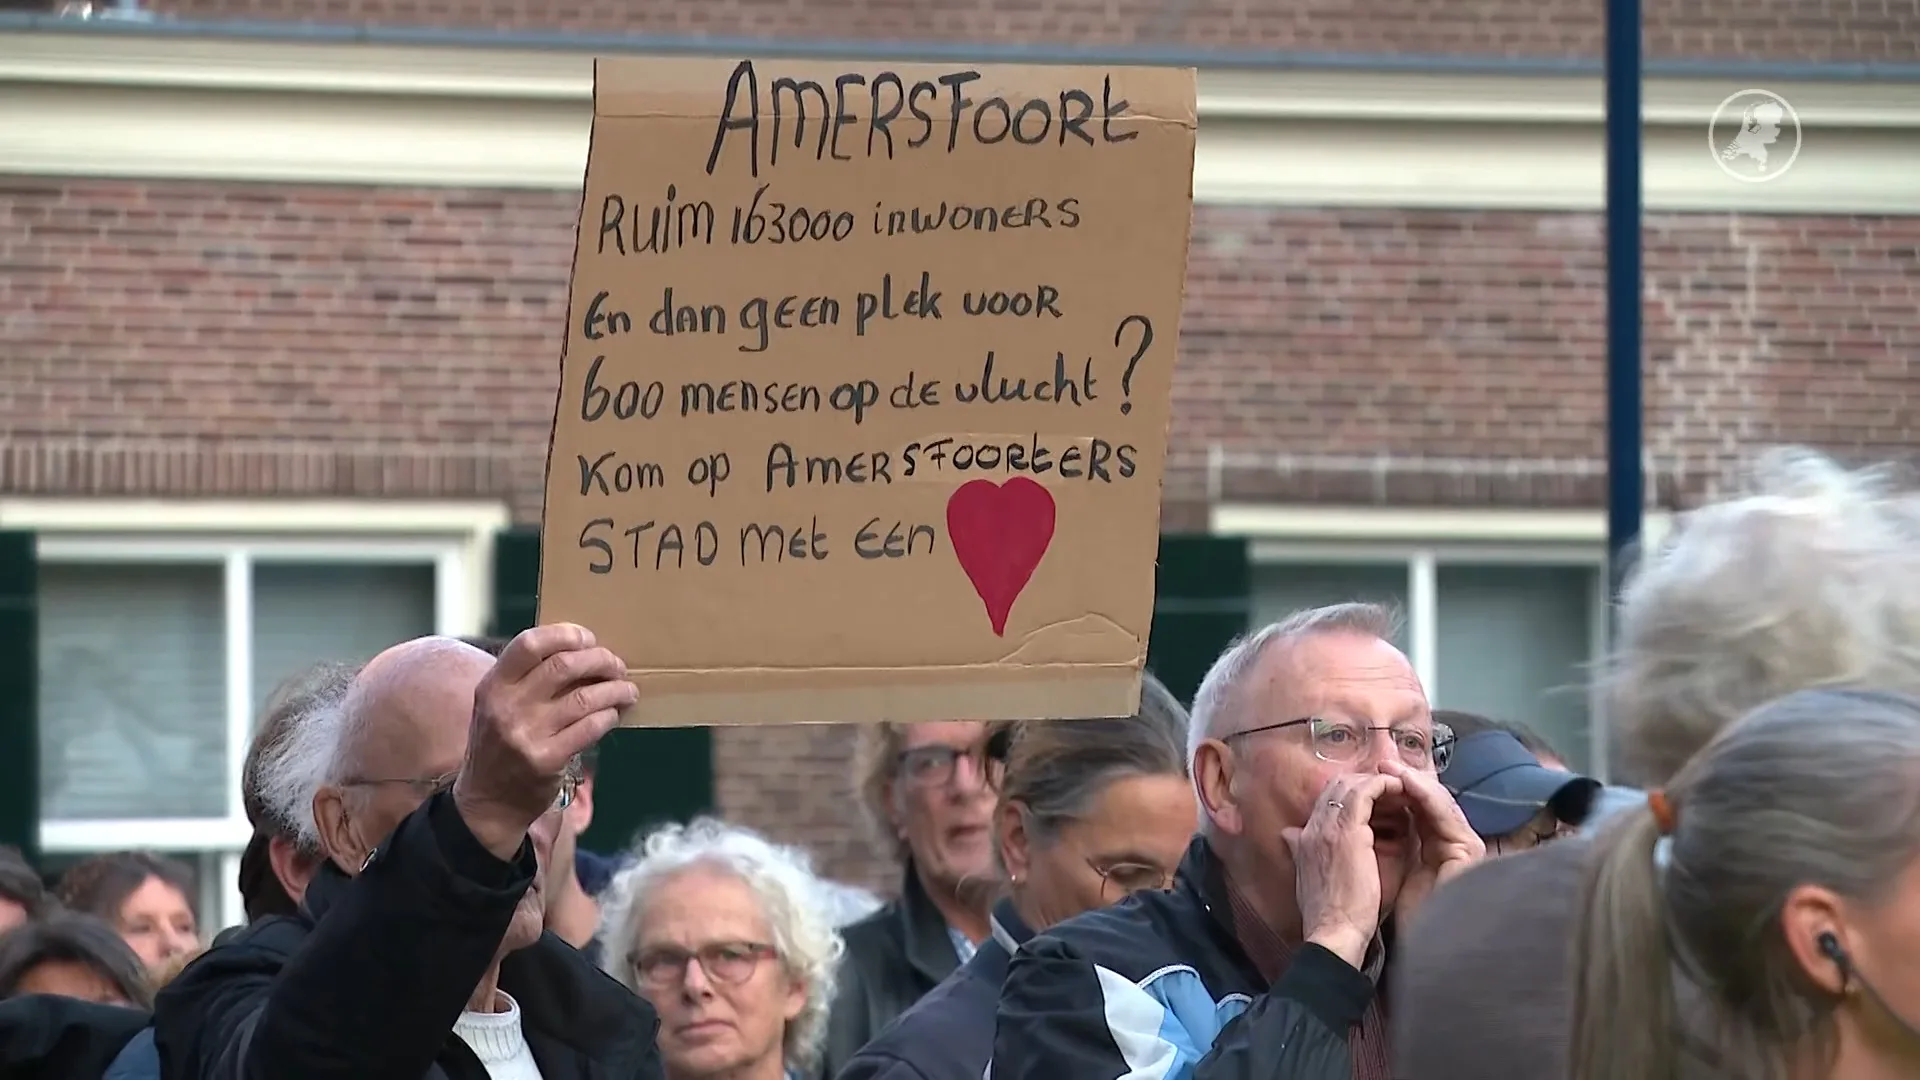 AMERSFOORT
RUIM 163000 inwoners
En dan geen plek voor
600 mensen op de vlucht?
Kom op Amersfoorters
STAD met een